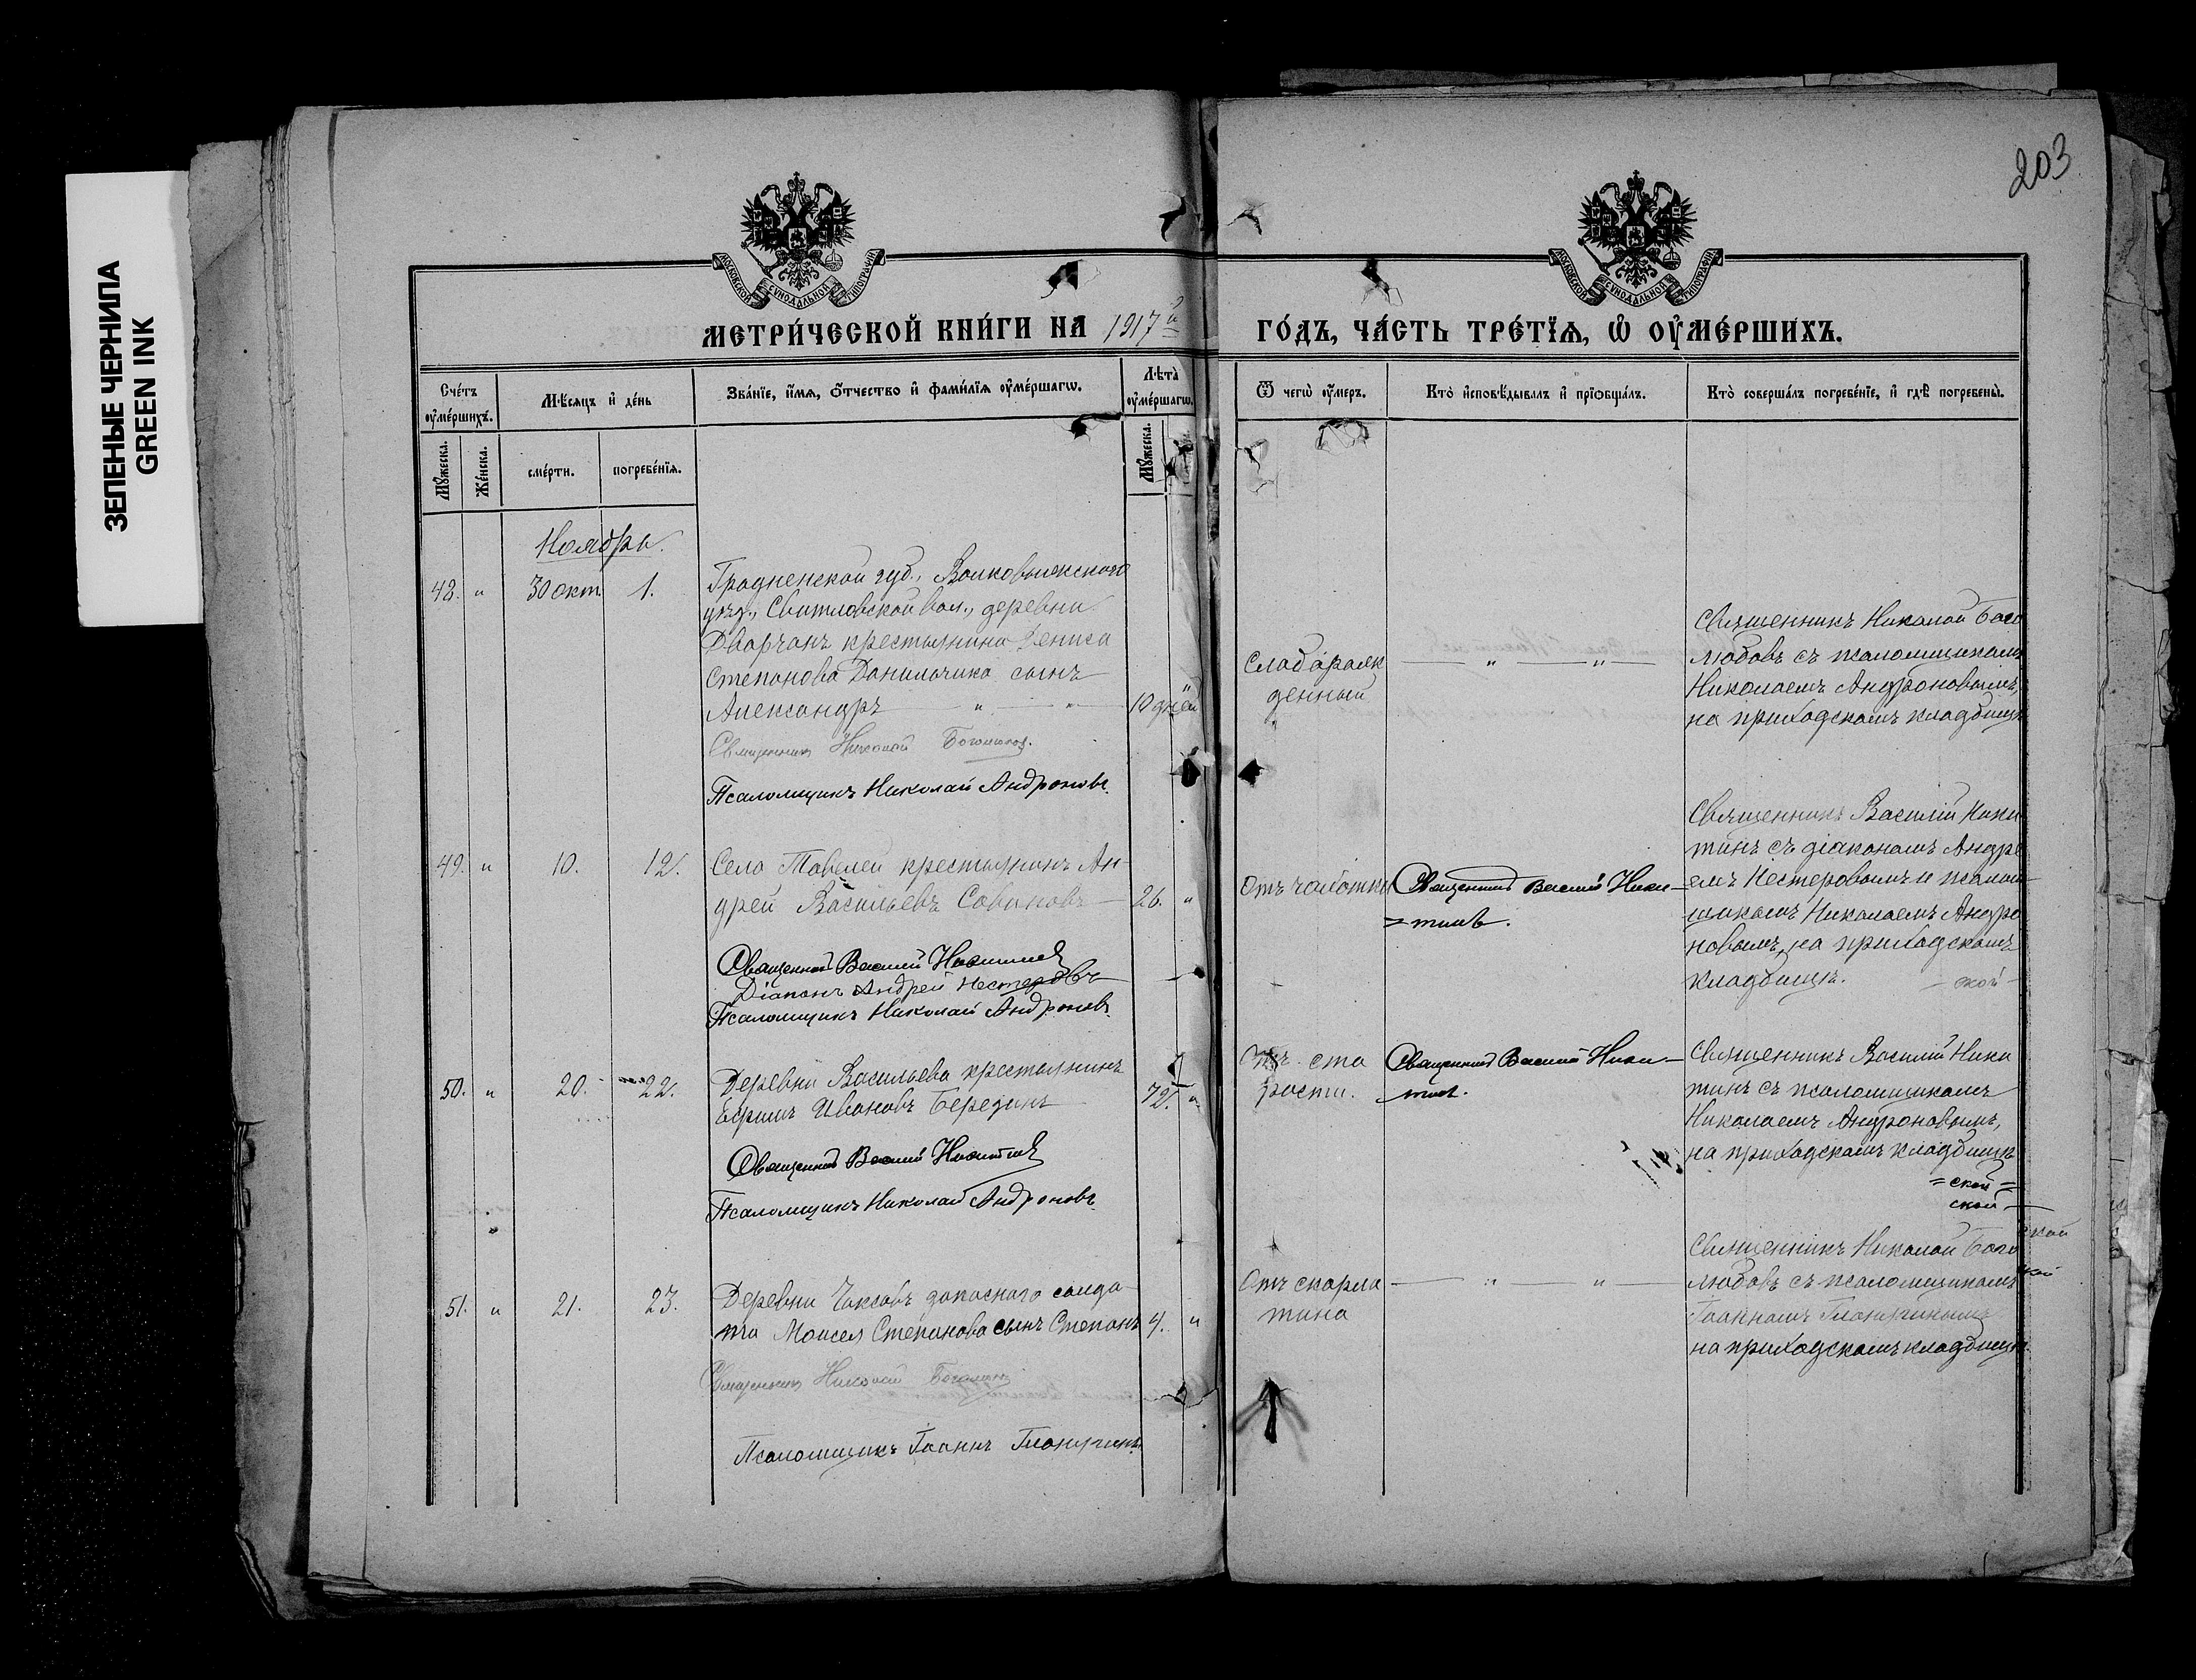 ЗЕЛЕНЫЕ ЧЕРНИЛА
GREEN INK
203
МОСКОВСКОЙ СѴНОДАЛЬНОЙ ТИПОГРАФІИ
МОСКОВСКОЙ СѴНОДАЛЬНОЙ ТИПОГРАФІИ
МЕТРИ́ЧЕСКОЙ КНИ́ГИ НА 1917й
ГО́ДЪ, ЧА́СТЬ ТРЕ́ТЇѦ, Ѡ҆ ОУ҆МЕ́РШИХЪ.
Сче́тъ оу҆ме́ршихъ.
Мѣ́сѧцъ и҆ де́нь
Зва́нїе, и҆́мѧ, ѻ҆́тчество и҆ фами́лїѧ оу҆ме́ршагѡ.
Лѣ́та оу҆ме́ршагѡ.
Ѿ чегѡ̀ оу҆́меръ.
Кто̀ и҆сповѣ́дывалъ и҆ прїѡбща́лъ.
Кто̀ соверша́лъ погребе́нїе, и҆ гдѣ̀ погребены̀.
Мꙋ́жеска.
Же́нска.
сме́рти.
погребе́нїѧ.
Мꙋ́жеска.
Ноябрь.
48. " 30 окт 1.
Гродненской губ., Волковыжского
уѣзд., Свитловской вол., деревни
Дворчанъ крестьянина Дениса
Степанова Данильчика сынъ
Александръ — " — " —
10 дней
Священник Николай Боголюбов.
Псаломщикъ Николай Андроновъ.
Слабарож
денный
— " — " —
Священникъ Николай Бого
любовъ съ псаломщикомъ
Николаемъ Андроновымъ,
на приходскомъ кладбищѣ
49. " 10. 12.
Села Тавелей крестьянинъ Ан-
дрей Васильевъ Савиновъ —
26. "
Священникъ Василий Никитинъ
Діаконъ Андрей Нестеровъ
Псаломщикъ Николай Андроновъ.
Отъ чахотки
Священникъ Василий Ники-
=тинъ.
Священникъ Василій Ники
тинъ съ діакономъ Андре
емъ Нестеровымъ и псалом
щикомъ Николаемъ Андро
новымъ, на приходскомъ
кладбищѣ. — ской —
50. " 20. 22.
Деревни Васильева крестьянинъ
Ефимъ Ивановъ Березинъ
72. "
Священникъ Василий Никитинъ
Псаломщикъ Николай Андроновъ.
Отъ ста
рости.
Священникъ Василий Ники-
тинъ.
Священникъ Василій Ники
тинъ съ псаломщикомъ
Николаемъ Андроновымъ,
на приходскомъ кладбищѣ
= ской =
ской —
ской
51. " 21. 23.
Деревни Чаксовъ запаснаго солда-
та Моисея Степанова сынъ Степанъ
4. "
Священникъ Николай Боголюбов
Псаломщикъ Іоаннъ
Отъ скарла
тина
— " — " —
Священникъ Николай Бого
любовъ съ псаломщикомъ
Іоанномъ
на приходскомъ кладбищѣ.